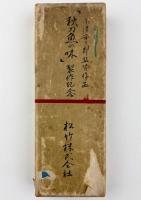 小津安二郎監督作品
「秋刀魚の味」製作記念
松竹株式会社